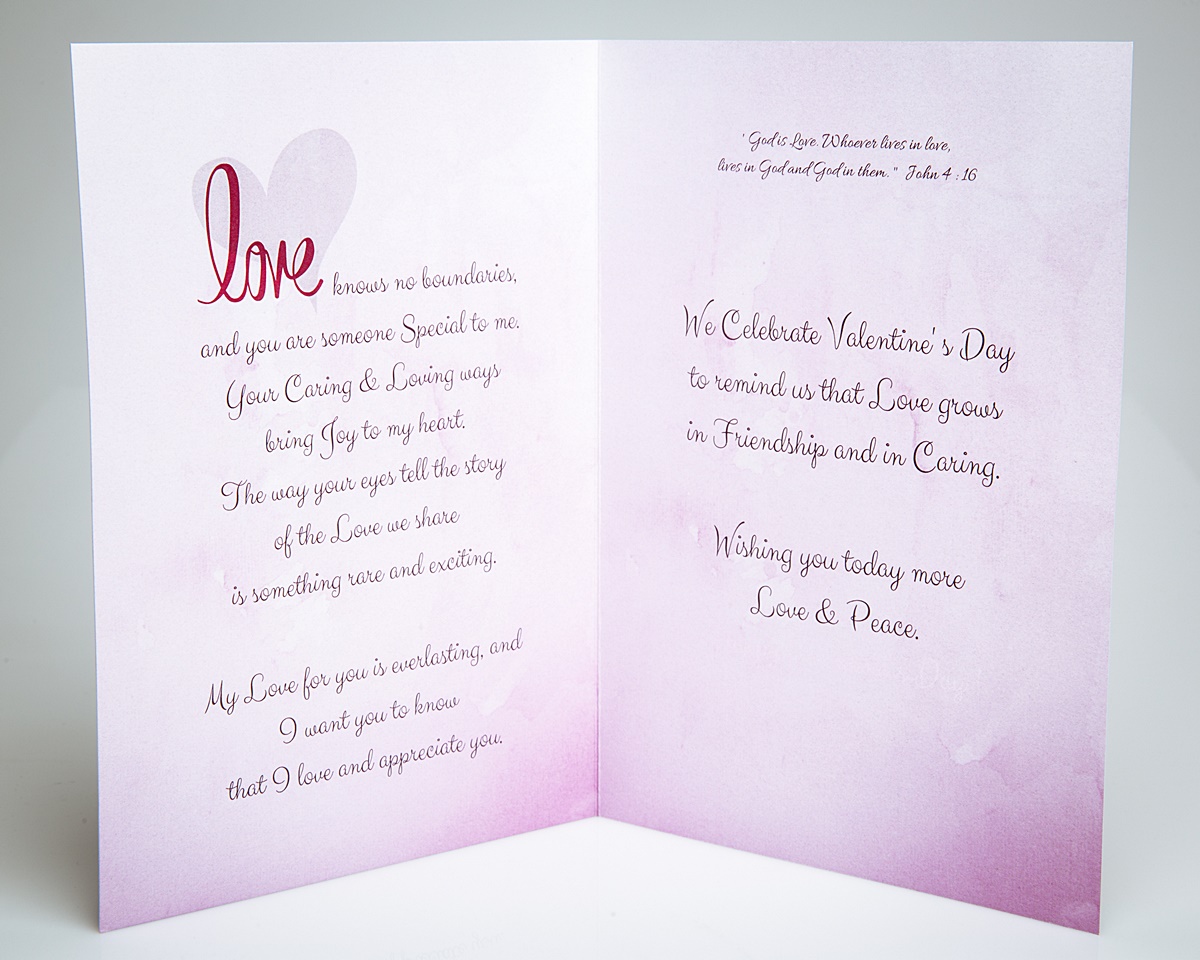 love knows no boundaries,
and you are someone Special to me.
Your Caring & Loving ways
bring Joy to my heart.
The way your eyes tell the story
of the Love we share
is something rare and exciting.
My Love for you is everlasting, and
I want you to know
that I love and appreciate you.
' God is Love. Whoever lives in love,
lives in God and God in them. " John 4 : 16
We Celebrate Valentine's Day
to remind us that Love grows
in Friendship and in Caring.
Wishing you today more
Love & Peace.